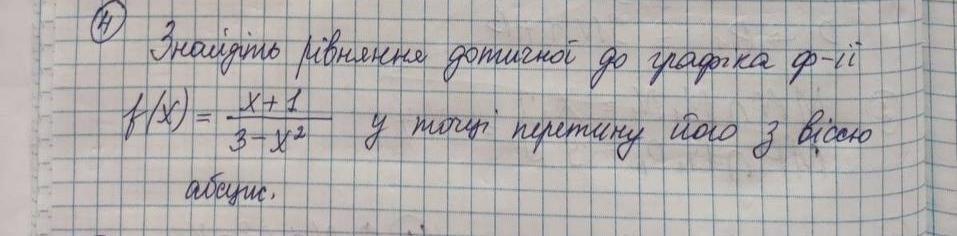 4
Знайдіть рівняння дотичної до графіка ф-ії
f(x) = x+1 / 3-x² у точці перетину його з віссю
абсцис.